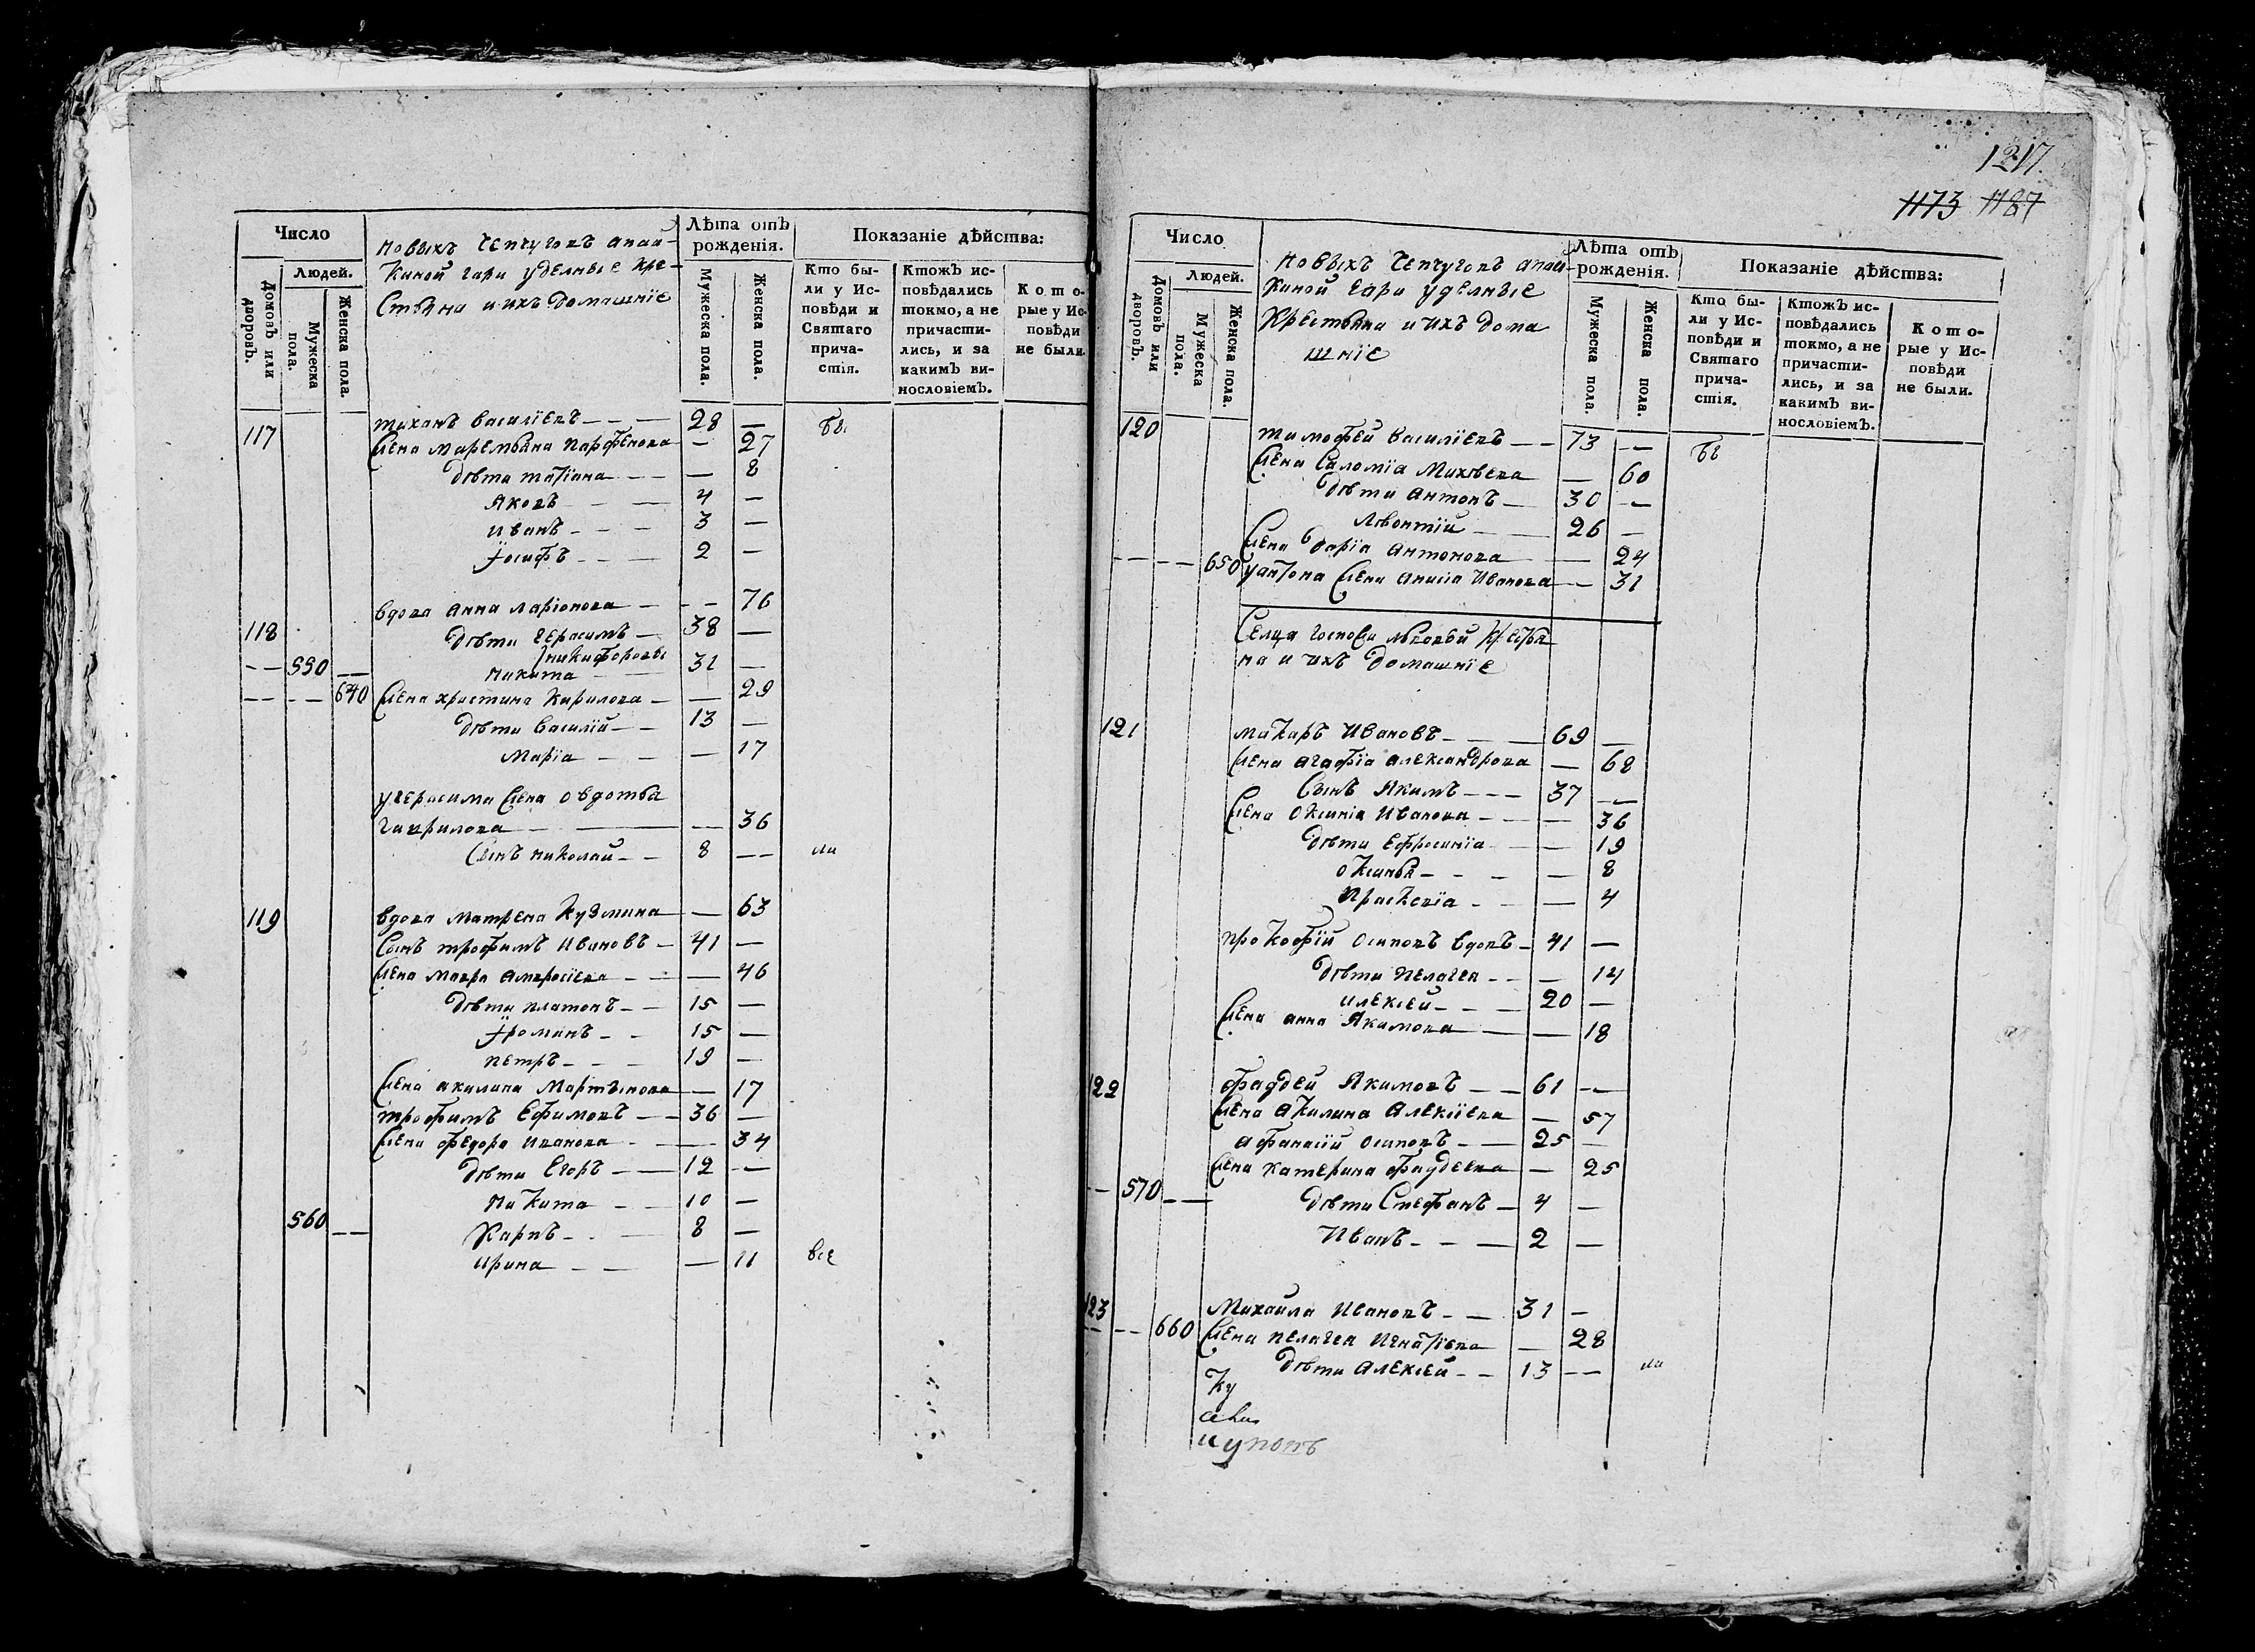 Число
Людей.
Домовъ или дворовъ.
Мужеска пола.
Женска пола.
новыхъ Чепчуговъ апал-
киной гари уделные кре-
стьяна и ихъ домашнїе
Лѣта отъ рожденія.
Мужеска пола.
Женска пола.
Показаніе дѣйства:
Кто бы-
ли у Ис-
повѣди и
Святаго
прича-
стія.
Ктожъ ис-
повѣдались
токмо, а не
причасти-
лись, и за
какимъ ви-
нословіемъ.
Кото-
рые у Ис-
повѣди
не были.
117 тиханъ василїевъ — 28 — бы
жена маремьяна парфенова — 27
дѣти татїана — 8
яковъ — 4 —
иванъ — 3 —
їосифъ — 2 —
вдова анна ларїонова — 76
118 дѣти герасимъ — 38 —
никифоровы
550 — никита 31 —
640 жена христина кирилова — 29
дѣти василїй — 13 —
марїа — 17
у герасима жена овдотья
гаврилова — 36
сынъ николай — 8 — ли
119 вдова матрена кузмина — 63
сынъ трофимъ ивановъ — 41 —
жена мавра амвросїева — 46
дѣти платонъ — 15 —
романъ — 15 —
петръ — 19 —
жена акилина мартынова — 17
трофимъ ефимовъ — 36 —
жена федора иванова — 34
дѣти егоръ — 12 —
никита — 10 —
560 — карпъ — 8 —
ирина — 11 все
1217.
1173 1187
Число
Людей.
Домовъ или дворовъ.
Мужеска пола.
Женска пола.
новыхъ Чепчуговъ апал-
киной гари уделные
крестьяна и ихъ дома
шнїе
Лѣта отъ рожденія.
Мужеска пола.
Женска пола.
Показаніе дѣйства:
Кто бы-
ли у Ис-
повѣди и
Святаго
прича-
стія.
Ктожъ ис-
повѣдались
токмо, а не
причасти-
лись, и за
какимъ ви-
нословіемъ.
Кото-
рые у Ис-
повѣди
не были.
120 тимофей василїевъ — 73 — бы
жена саломїа михѣева — 60
дѣти антонъ — 30 —
лѣвонтїй — 26 —
жена дарїа антонова — 24
650 у антона жена анисїа иванова — 31
селца
на и ихъ домашнїе
121 макаръ ивановъ — 69 —
жена агафїа александрова — 68
сынъ якимъ — 37 —
жена оксинїа иванова — 36
дѣти ефросинїа — 19
оксинья — 8
прасковїа — 4
прокофїй осиповъ вдовъ — 41 —
дѣти пелагея — 14
алексей — 20 —
жена анна якимова — 18
122 фаддей якимовъ — 61 —
жена акилина алексїева — 57
афанасїй осиповъ — 25 —
жена катерина фаддеева — 25
570 — дѣти стефанъ — 4 —
иванъ — 2 —
123 михайла ивановъ — 31 —
660 жена пелагея игнатїева — 28
дѣти алексей — 13 — ли